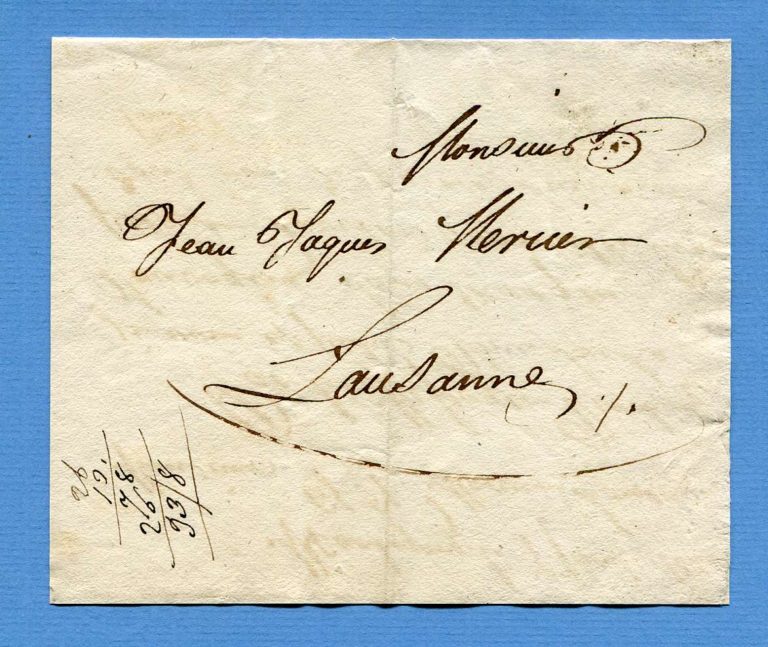 Monsieur
Jean Jaques Mercier
Lausanne ./.
26
13.
78
26
338